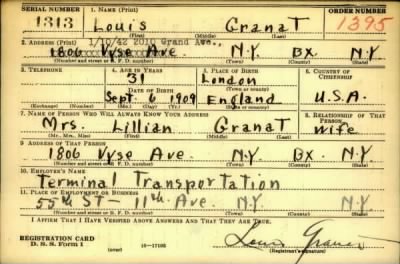 SERIAL NUMBER 1. NAME (Print) ORDER NUMBER
1313 Louis Granat 1395
(First) (Middle) (Last)
2. ADDRESS (Print) 1/10/42 2010 Grand Ave.,
1806 Vyse Ave N.Y. BX. N.Y
(Number and street or R. F. D. number) (Town) (County) (State)
3. TELEPHONE 4. AGE IN YEARS 5. PLACE OF BIRTH 6. COUNTRY OF CITIZENSHIP
31 London
DATE OF BIRTH (Town or county)
Sept. 1909 England U.S.A.
(Exchange) (Number) (Mo.) (Day) (Yr.) (State or country)
7. NAME OF PERSON WHO WILL ALWAYS KNOW YOUR ADDRESS 8. RELATIONSHIP OF THAT PERSON
Mrs. Lillian Granat wife
(Mr., Mrs., Miss) (First) (Middle) (Last)
9. ADDRESS OF THAT PERSON
1806 Vyse Ave. N.Y. BX. N.Y
(Number and street or R. F. D. number) (Town) (County) (State)
10. EMPLOYER'S NAME
Terminal Transportation
11. PLACE OF EMPLOYMENT OR BUSINESS
55th St - 11th Ave. N.Y. N.Y
(Number and street or R. F. D. number) (Town) (County) (State)
I AFFIRM THAT I HAVE VERIFIED ABOVE ANSWERS AND THAT THEY ARE TRUE.
REGISTRATION CARD
D. S. S. Form 1 (over) 16-17105 Louis Granat
(Registrant's signature)